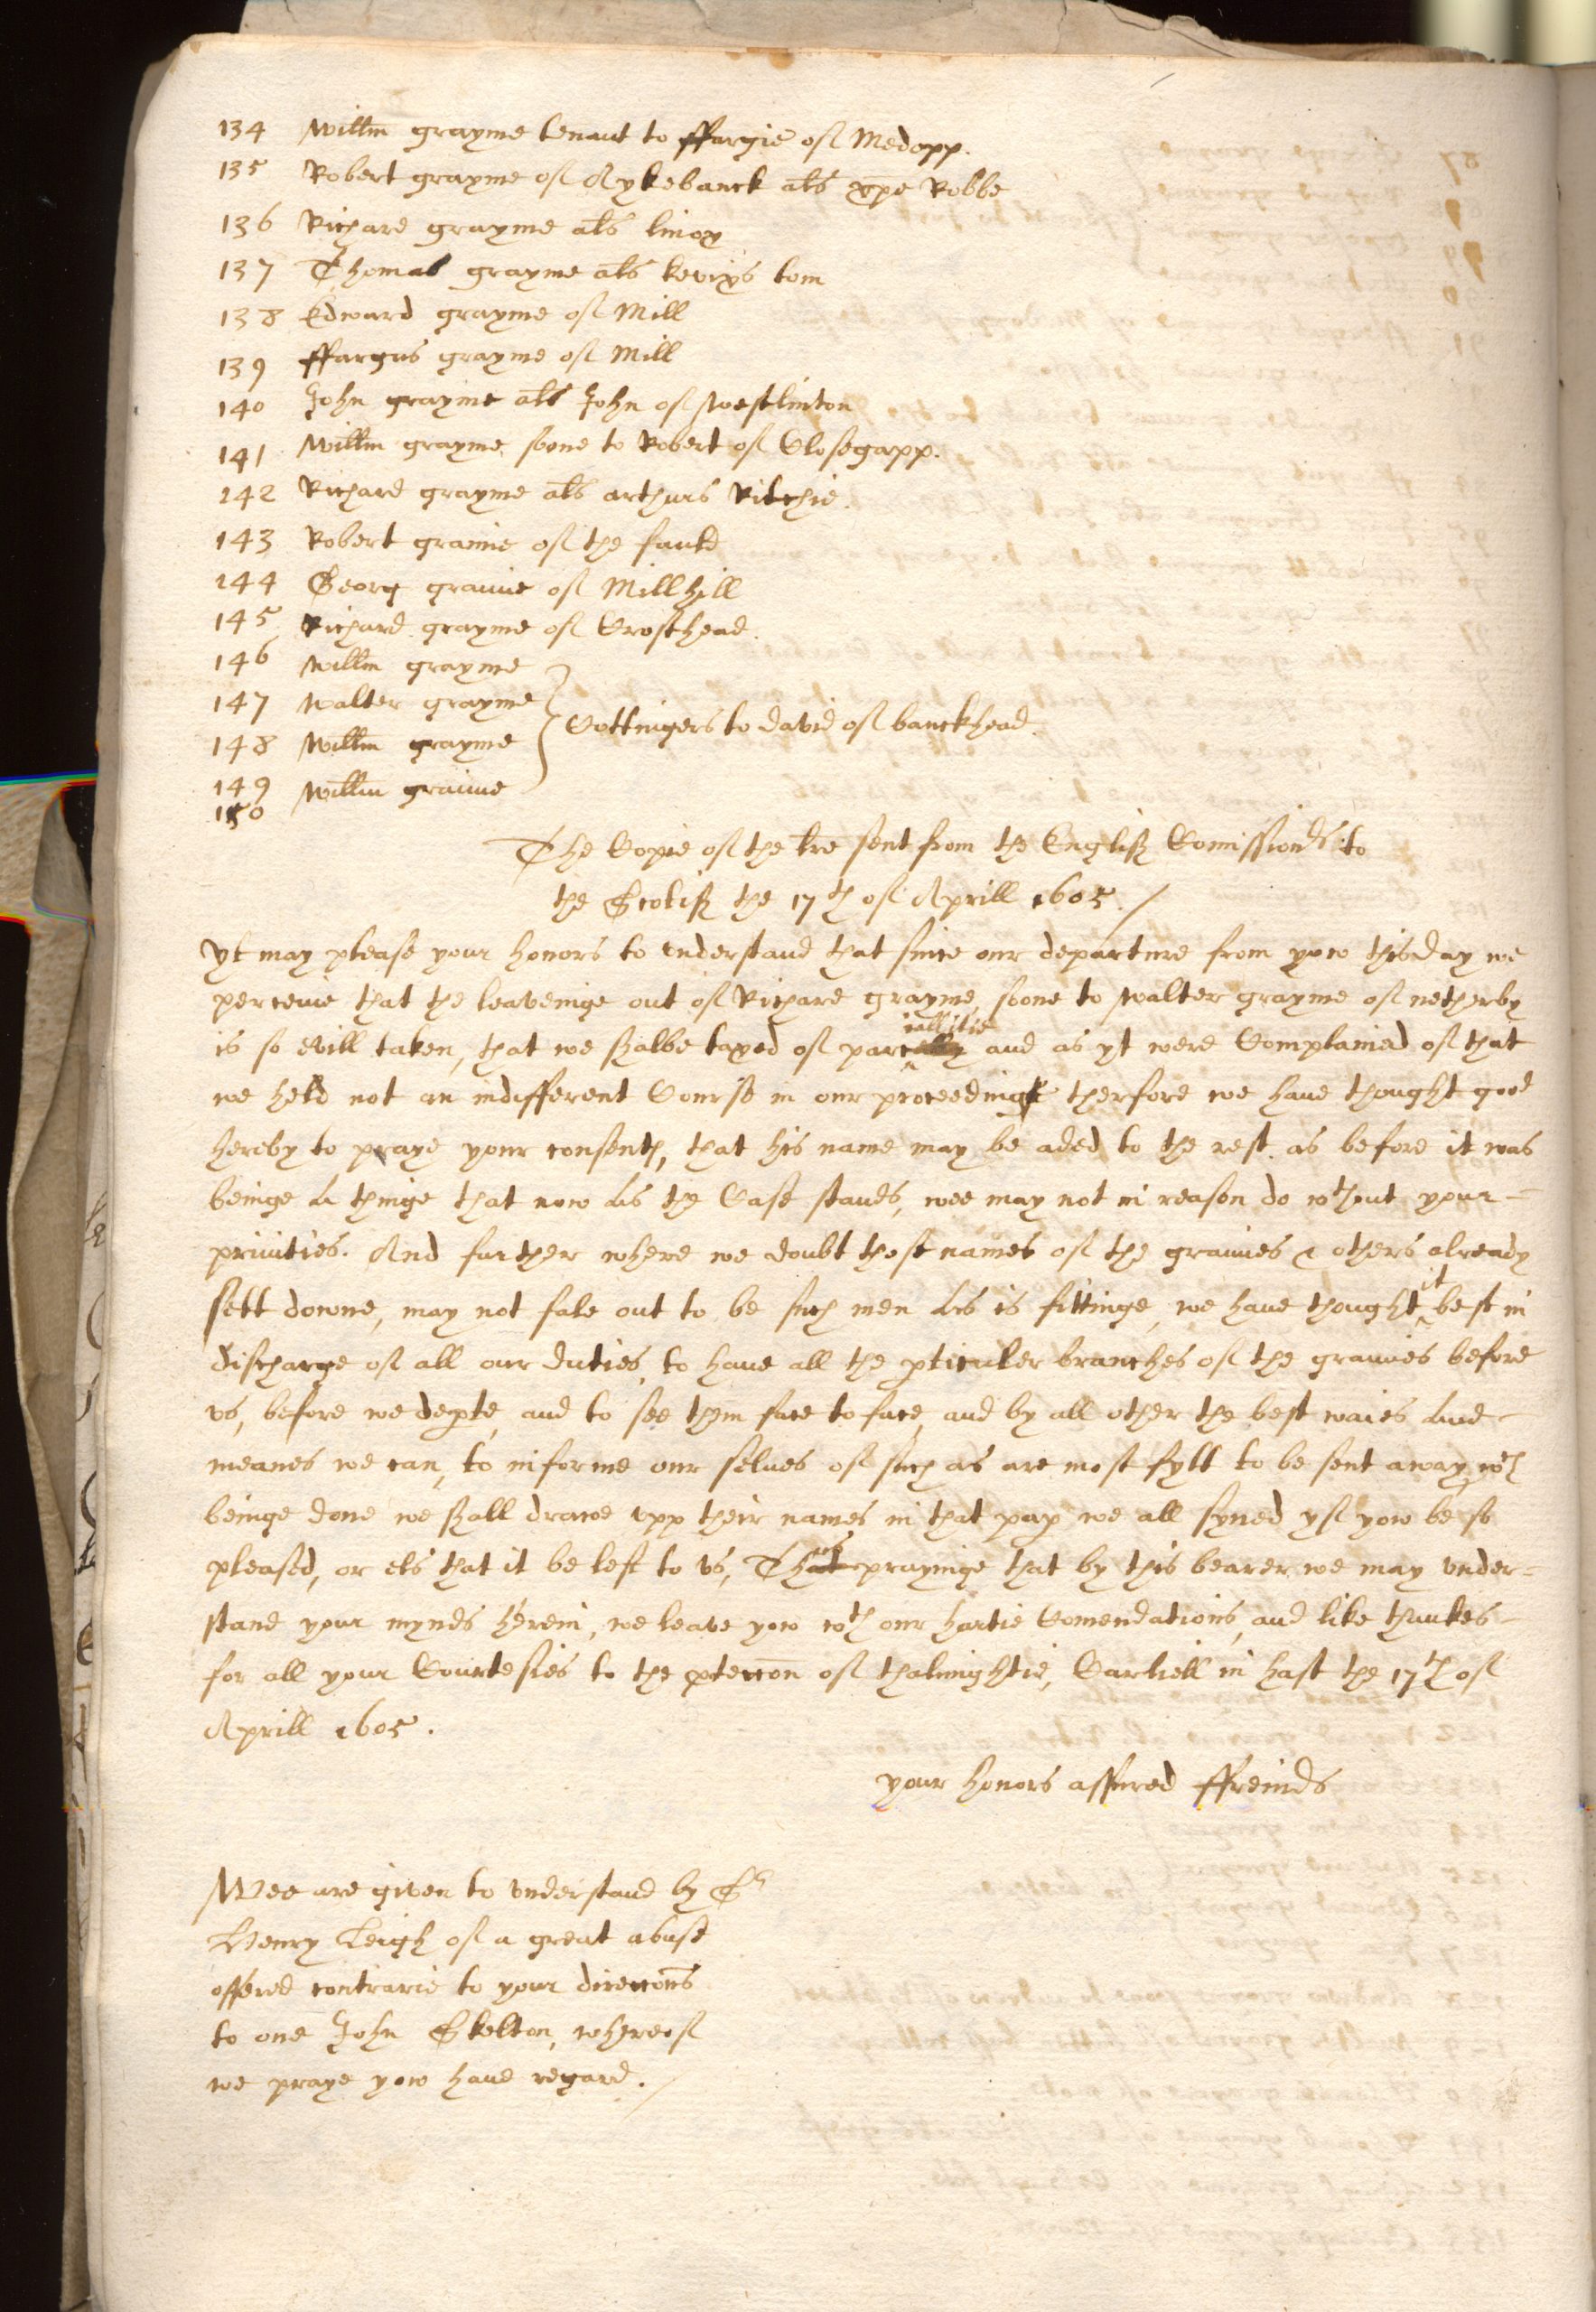 134 Willm grayme tenant to ffargie of Medopp.
135 Robert grayme of Rykebanck als xpe Robbe
136 Richard grayme als
137 Thomas grayme als tom
138 Edward grayme of Mill
139 ffargus grayme of Mill
140 John grayme als John of Westlinton
141 Willm grayme soone to Robert of Closegapp.
142 Richard grayme als arthurs Ritchie.
143 Robert graime of the fauld
144 Georg graime of Millhill
145 Richard grayme of Crosthead.
146 Willm grayme
147 Walter grayme
148 Willm grayme
149 Willm graime
Cottingers to david of banckhead.
150
The Copie of the lre sent from the English Comissionrs to
the Scotish the 17th of Aprill 1605./
Yt may please your honors to vnderstand that since our departure from yow this day we
perceive that the leaveinge out of Richard grayme soone to Walter grayme of netherby
is so evill taken, that we shalbe taxed of parciallitie and as yt were Complained of that
we held not an indifferent Course in our proceedings therfore we have thought good
hereby to praye your consents, that his name may be aded to the rest. as before it was
beinge A thinge that now As the Case stands, wee may not in reason do wthout your =
privities. And further where we doubt those names of the graimes & others already
sett downe, may not fale out to be such men As is fittinge, we have thought it best in
discharge of all our duties, to have all the pticuler branches of the graimes before
vs, before we depte, and to see them face to face, and by all other the best waies And
meanes we can, to informe our selves of such as are most fytt to be sent away, wch
beinge done we shall drawe vpp their names in that pap we all syned yf yow be so
pleased, or els that it be left to vs, Thus prayinge that by this bearer we may vnder=
stand your mynds herein, we leave yow wth our hartie Comendations, and like thankes
for all your Courtesies to the pteccon of thalmightie, Carliell in hast the 17th of
Aprill 1605.
your honors assured ffreinds
Wee are given to vnderstand by Sr
Henry Leigh of a great abuse
offered contrarie to your direccons
to one John Skelton, whereof
we praye yow have regard./